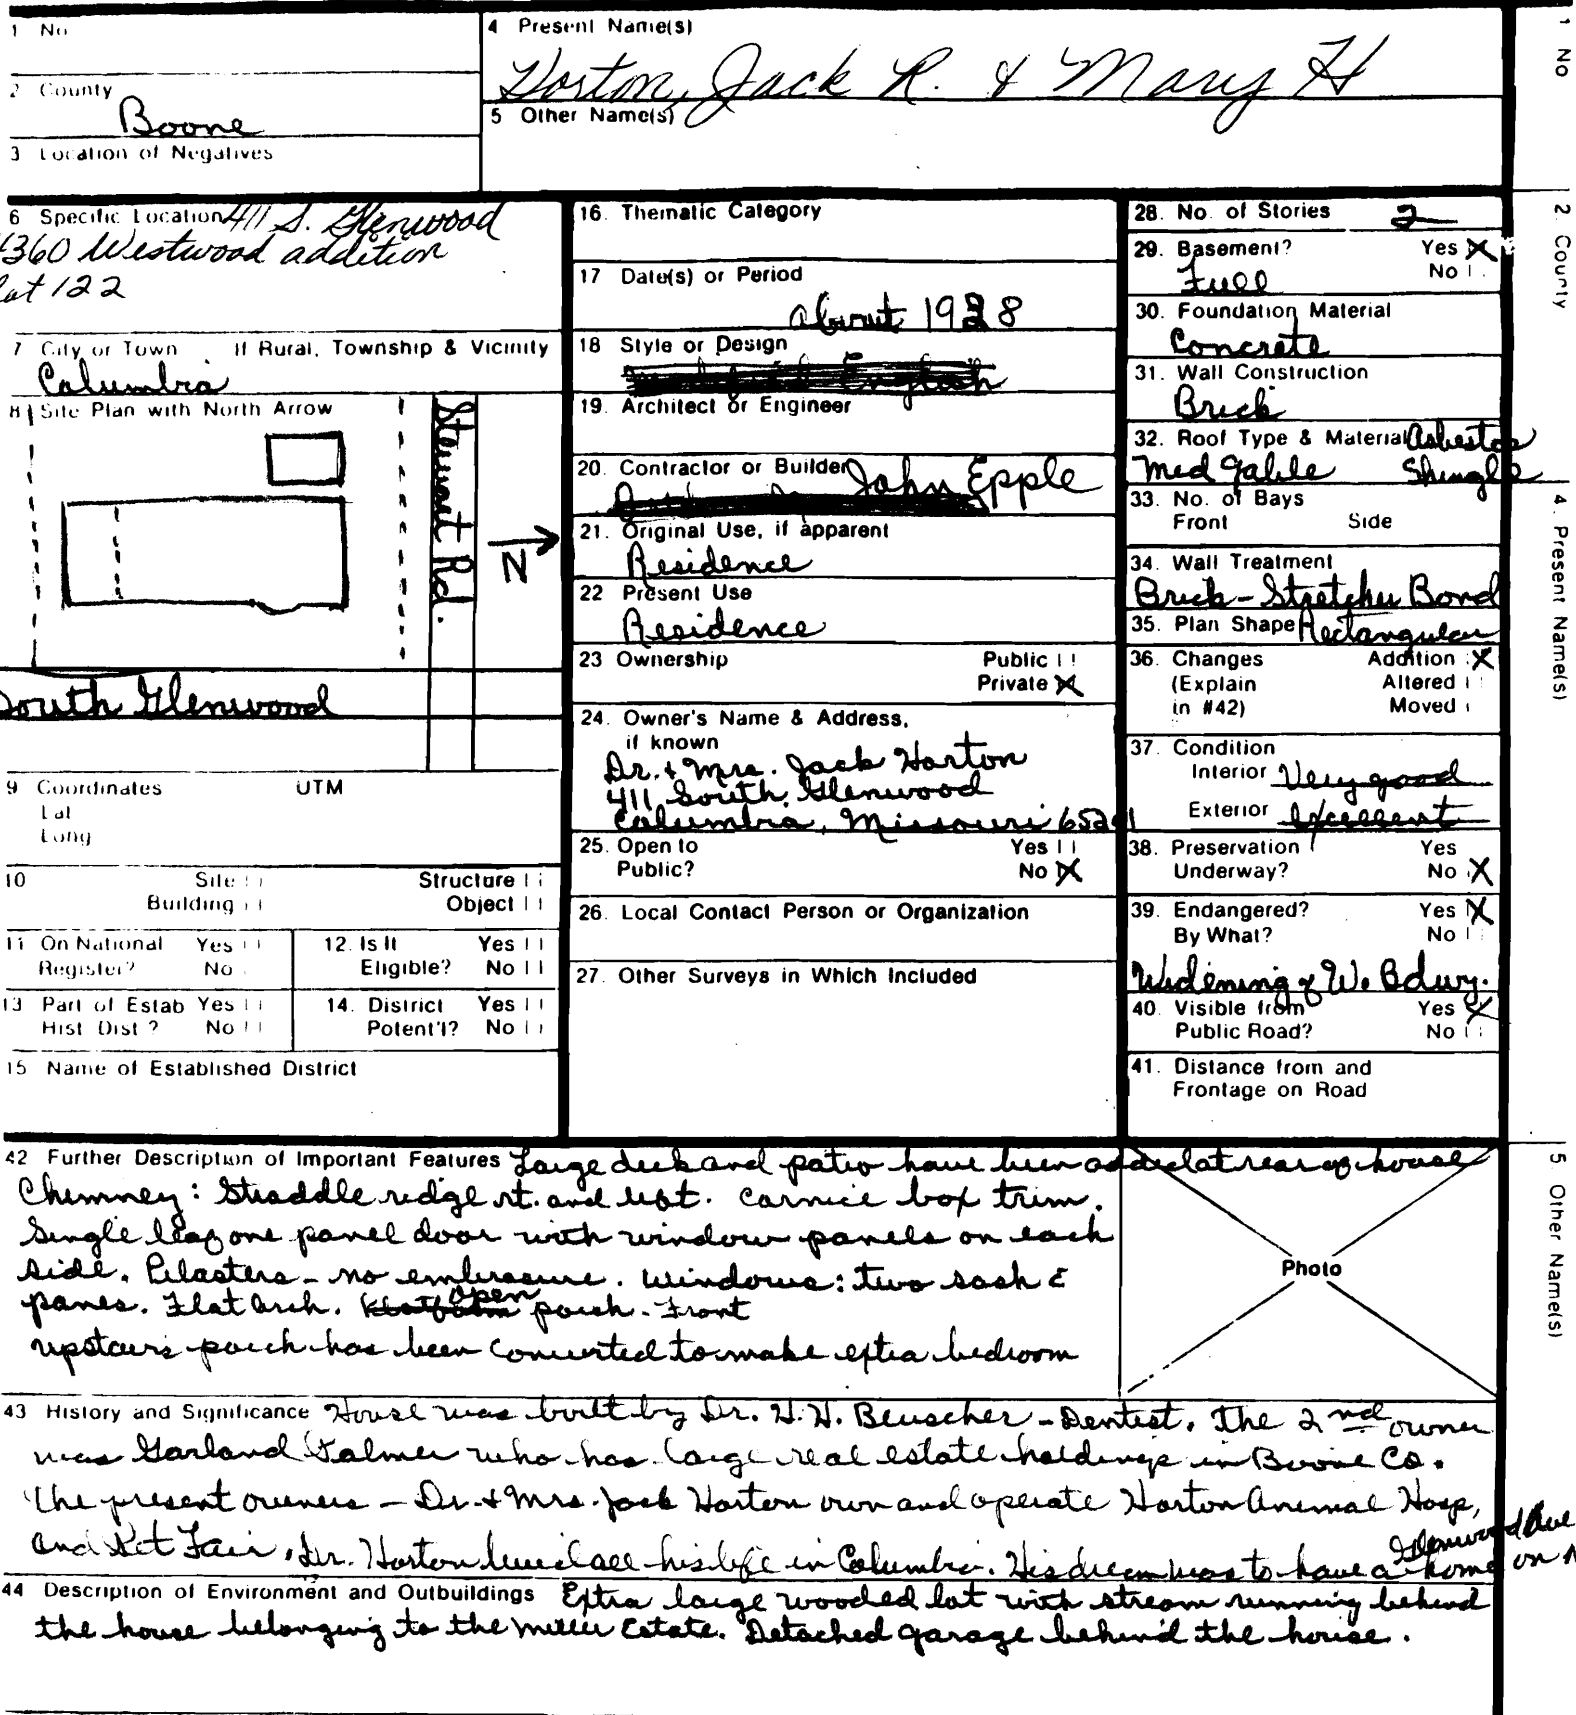 1 No.
4 Present Name(s)
Horton, Jack R. & Mary H
2 County
Boone
5 Other Name(s)
3 Location of Negatives
6 Specific Location 411 S. Glenwood
360 Westwood addition
Lot 122
7 City or Town If Rural, Township & Vicinity
Columbia
8 Site Plan with North Arrow
Stewart Rd.
N
South Glenwood
9 Coordinates UTM
Lat
Long
10 Site Structure
Building Object
11 On National Register? Yes No
12. Is It Eligible? Yes No
13 Part of Estab Hist Dist? Yes No
14. District Potent'l? Yes No
15 Name of Established District
16. Thematic Category
17 Date(s) or Period
about 1928
18 Style or Design
English
19. Architect or Engineer
20. Contractor or Builder John Epple
21. Original Use, if apparent
Residence
22 Present Use
Residence
23 Ownership Public
Private X
24. Owner's Name & Address,
if known
Dr. & Mrs. Jack Horton
411 South Glenwood
Columbia, Missouri 65201
25. Open to Yes
Public? No X
26. Local Contact Person or Organization
27. Other Surveys in Which Included
28. No. of Stories 2
29. Basement? Yes X
Full No
30. Foundation Material
Concrete
31. Wall Construction
Brick
32. Roof Type & Material Asbestos
Med gable Shingle
33. No. of Bays
Front Side
34. Wall Treatment
Brick - Stretcher Bond
35. Plan Shape Rectangular
36. Changes Addition X
(Explain Altered
in #42) Moved
37. Condition
Interior Very good
Exterior Excellent
38. Preservation Yes
Underway? No X
39. Endangered? Yes X
By What? No
Widening of W. Bdwy.
40. Visible from Yes X
Public Road? No
41. Distance from and
Frontage on Road
42 Further Description of Important Features Large deck and patio have been added at rear of house
Chimney: Straddle ridge rt. and left. Cornice box trim.
Single leaf one panel door with window panels on each
side. Pilasters - no embrasure. Windows: two sash
panes. Flat arch. open porch - Front
upstairs porch has been converted to make extra bedroom
Photo
43 History and Significance House was built by Dr. H.H. Beuscher - Dentist. The 2nd owner
was Garland who has large real estate holdings in Boone Co.
The present owners - Dr. & Mrs. Jack Horton own and operate Horton Animal Hosp,
and Pet Fair. Dr. Horton lived all his life in Columbia. His dream was to have a home on
Glenwood Ave
44 Description of Environment and Outbuildings Extra large wooded lot with stream running behind
the house belonging to the Miller Estate. Detached garage behind the house.
1 No
2. County
4. Present Name(s)
5. Other Name(s)